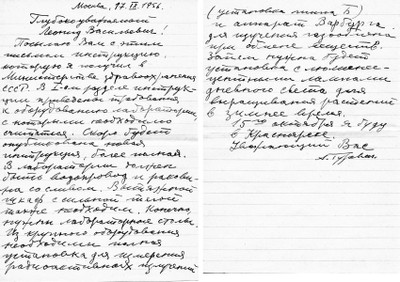 Москва, 17.IX.1956.
Глубокоуважаемый
Леонид Васильевич!
Посылаю Вам с этим
письмом инструкцию,
которую я получил в
Министерстве здравоохранения
СССР. В I-ом разделе инструк-
ции приведены требования
к оборудованию лаборатории,
с которыми необходимо
считаться. Скоро будет
опубликована новая
инструкция, более полная.
В лаборатории должен
быть водопровод и ракови-
на со сливом. Вытяжной
шкаф с сильной тягой
также необходим. Конечно,
нужны лабораторные столы.
Из крупного оборудования
необходимы полная
установка для измерения
радиоактивных излучений
(установка типа Б)
и аппарат Варбурга
для изучения газообмена
при обмене веществ.
Затем нужна будет
установка с люминес-
центными лампами
дневного света для
выращивания растений
в зимнее время.
15го октября я буду
в Красноярске.
Уважающий Вас